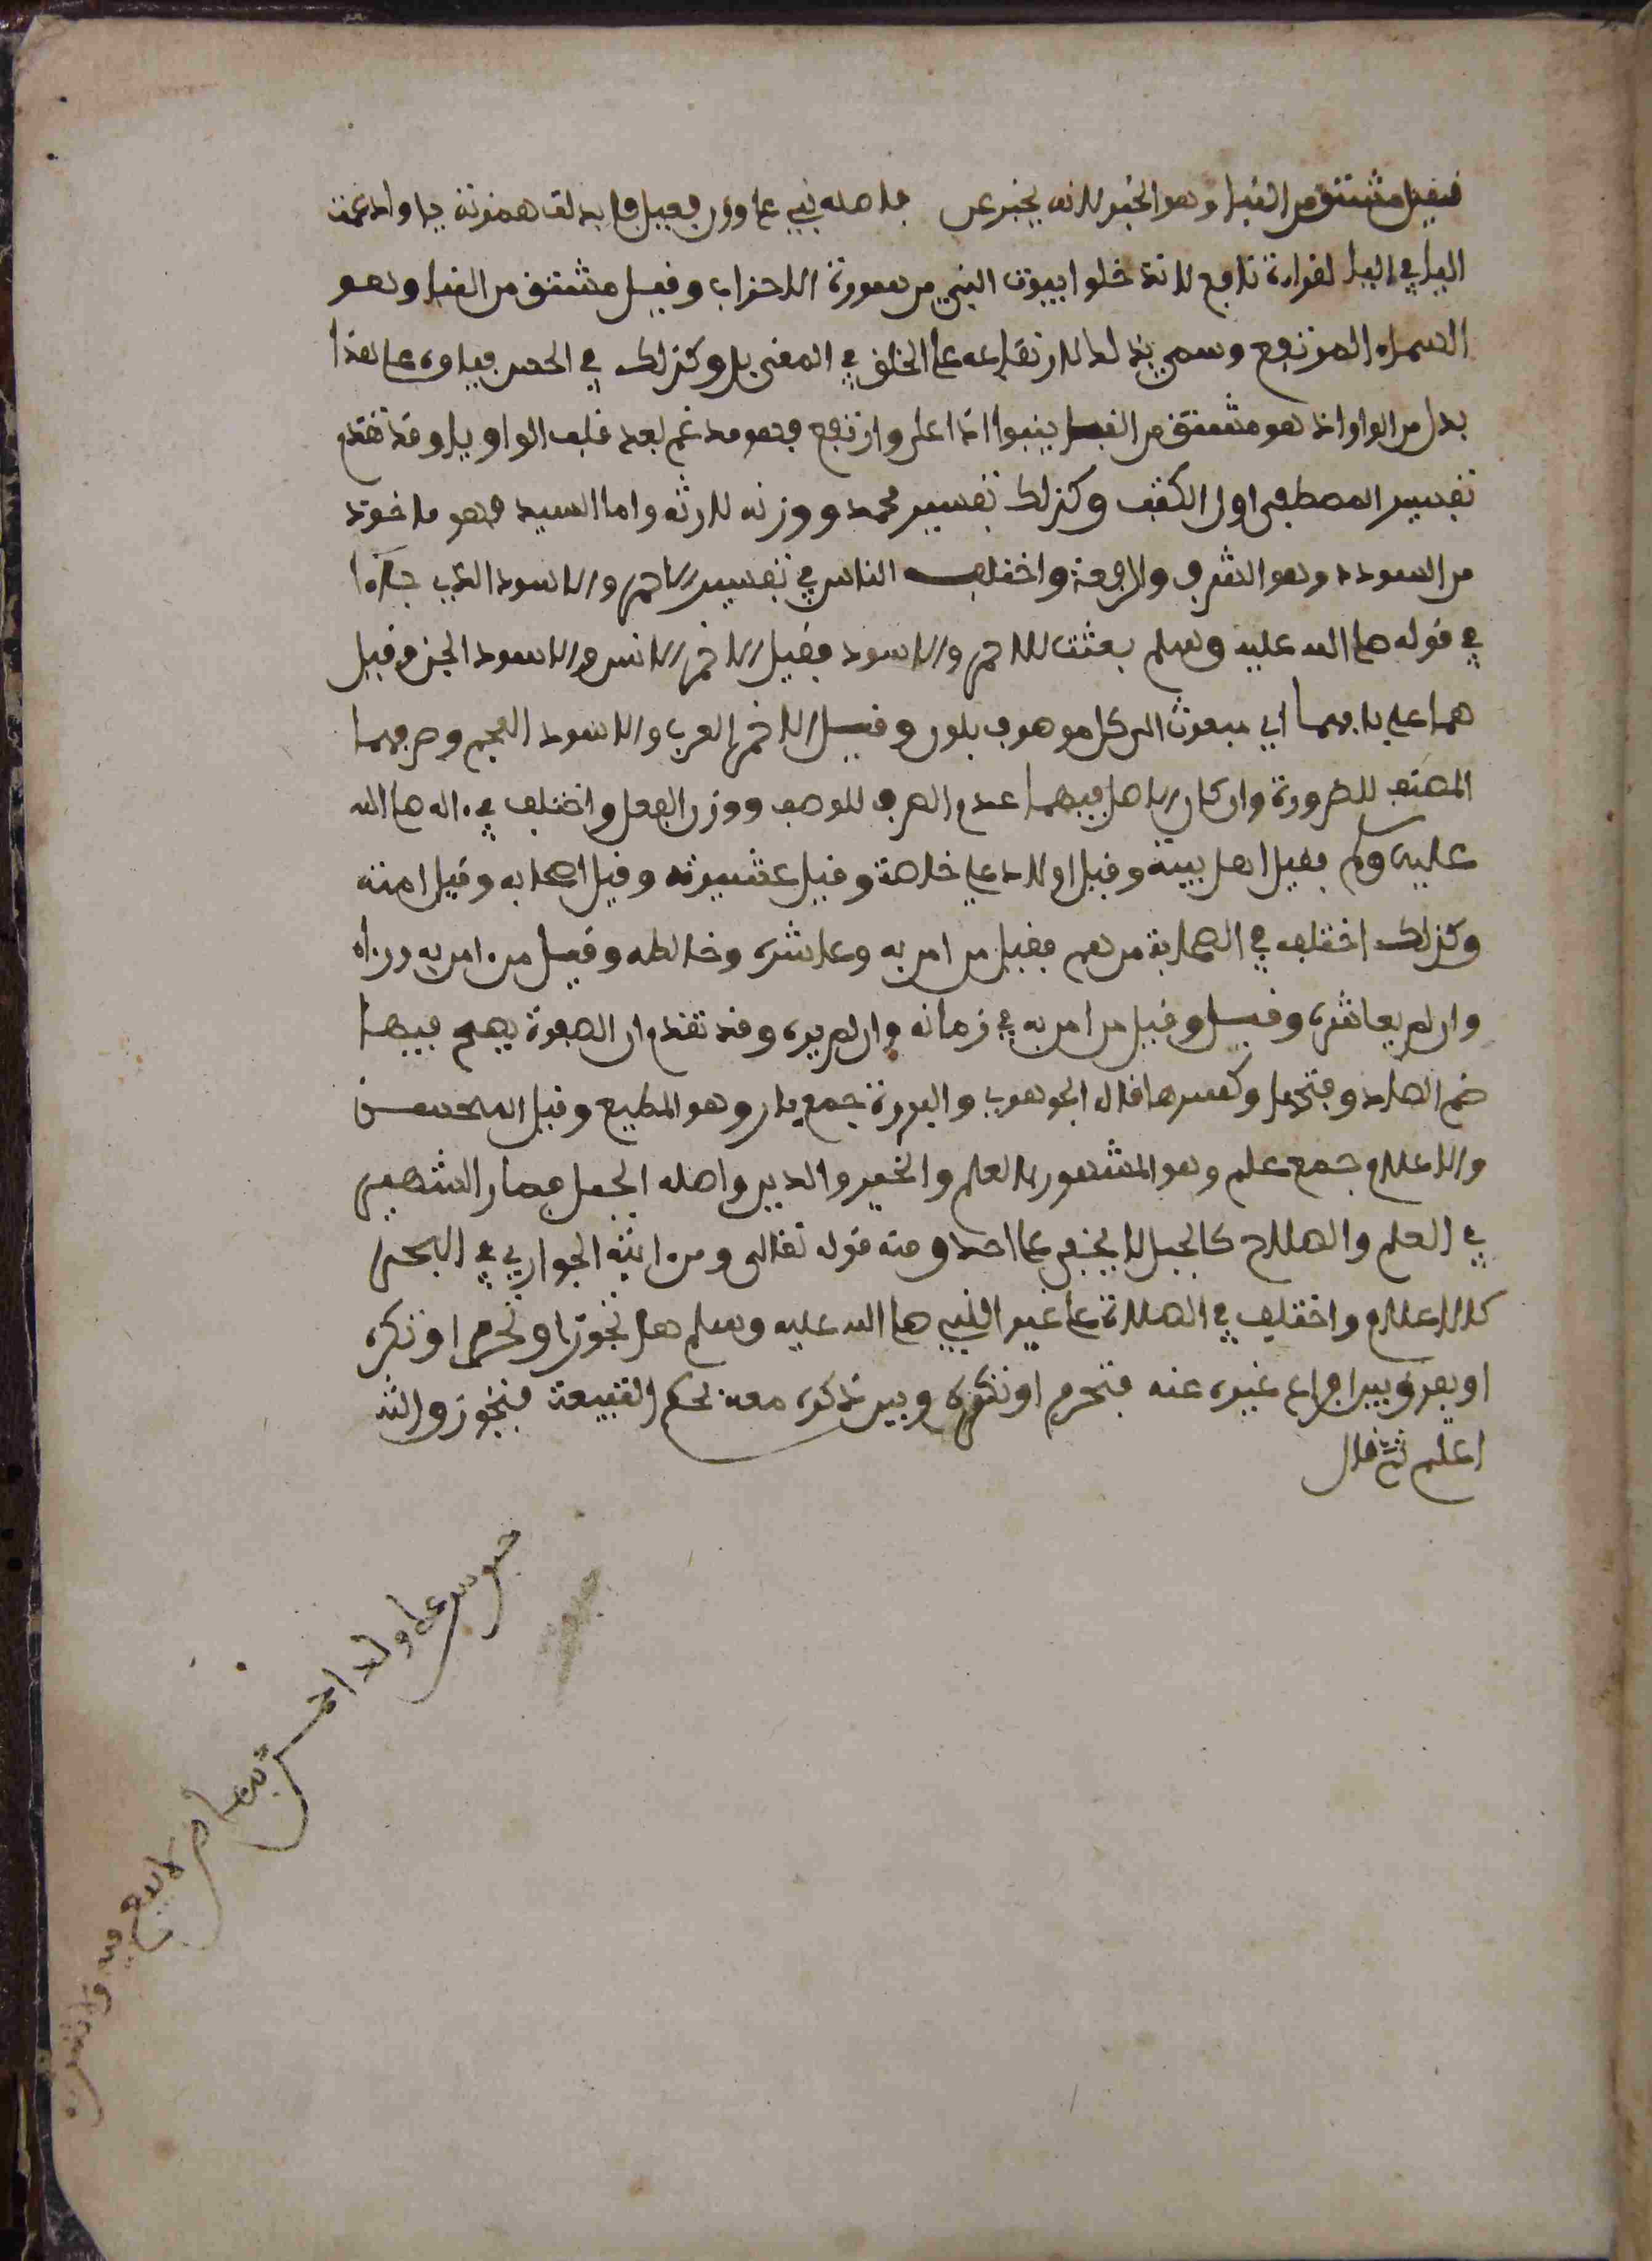 فقيل مشتق من النبإ وهو الخبر لانه يخبر عن فاصله نبيء على وزن فعيل فابدلت همزته ياء وادغمت
الياء في الياء لقراءة نافع لا تدخلوا بيوت النبيء من سورة الاحزاب وقيل مشتق من النبا وهو
المرتفع وسمي بذلك لارتفاعه على الخلق في المعنى بل وكذلك في الحس فياؤه على هذا
بدل من الواو اذ هو مشتق من ينبوا اذا على وارتفع فهو مدغم بعد قلب الواو ياء وقد تقدم
تفسير المصطفى اول الكتب وكذلك تفسير محمد ووزنه لارثه واما السيد فهو ماخوذ
من السودد وهو الشرف والرفعة واختلف الناس في تفسير الاحمر والاسود الذي جاءا
في قوله صلى الله عليه وسلم بعثت للاحمر والاسود فقيل الاحمر الانس والاسود الجن وقيل
هما على بابهما اي مبعوث الى كل موصوف بلون وقيل الاحمر العرب والاسود العجم وصرفهما
المصنف للضرورة وان كان الاصل فيهما عدم الصرف للوصف ووزن الفعل واختلف في ءاله صلى الله
عليه وسلم فقيل اهل بيته وقيل اولاد علي خاصة وقيل عشيرته وقيل اصحابه وقيل امته
وكذلك اختلف في الصحابة من هم فقيل من امن به وعاشره وخالطه وقيل من ءامن به ورءاه
وان لم يعاشره وقيل وقيل من امن به في زمانه وان لم يره وقد تقدم ان الصفوة يصح فيها
ضم الصاد وفتحها وكسرها قال الجوهري والبررة جمع بار وهو المطيع وقيل المحسن
والاعلام جمع علم وهو المشهور بالعلم والخير والدين واصله الجبل فصار الشهير
في العلم والصلاح كالجبل لا يخفى على احد ومنه قوله تعالى ومن ايته الجواري في البحر
كالاعلام واختلف في الصلاة على غير النبيء صلى الله عليه وسلم هل تجوز او تحرم او تكره
او يفرق بين افراد غيره عنه فتحرم او تكره وبين ذكره معه بحكم التبعية فتجوز والله
اعلم ثم قال
حبوس على ولد احمر